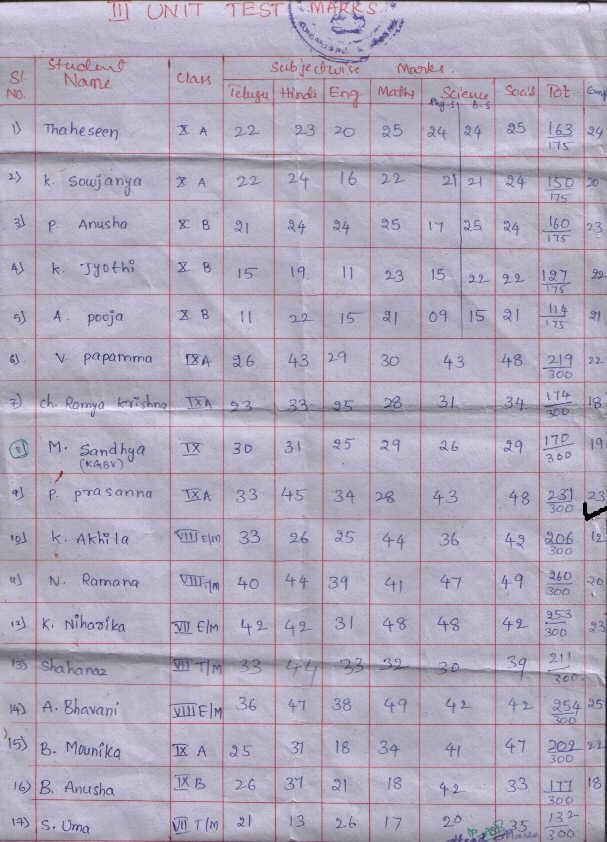 III UNIT TEST MARKS
Sl. No. Student Name Class Subjectwise Marks.
Telugu Hindi Eng Maths Science Social Tot
Phy-S B-S
1) Thaheseen X A 22 23 20 25 24 24 25 163/175 24
2) K. Sowjanya X A 22 24 16 22 21 21 24 150/175 20
3) P. Anusha X B 21 24 24 25 17 25 24 160/175 23
4) K. Jyothi X B 15 19 11 23 15 22 22 127/175 22
5) A. pooja X B 11 22 15 21 09 15 21 114/175 21
6) V. papamma IX A 26 43 29 30 43 48 219/300 22
7) Ch. Ramya Krishna IX A 23 33 25 28 31 34 174/300 18
8) M. Sandhya (KGBV) IX 30 31 25 29 26 29 170/300 19
9) P. prasanna IX A 33 45 34 28 43 48 231/300 23
10) K. Akhila VIII E/M 33 26 25 44 36 42 206/300 12
11) N. Ramana VIII T/M 40 44 39 41 47 49 260/300 20
12) K. Niharika VII E/M 42 42 31 48 48 42 253/300 23
13) Shahanaz VII T/M 33 44 33 32 30 39 211/300
14) A. Bhavani VIII E/M 36 47 38 49 42 42 254/300 25
15) B. Mounika IX A 25 37 18 34 41 47 202/300 22
16) B. Anusha IX B 26 37 21 18 42 33 177/300 18
17) S. Uma VII T/M 21 13 26 17 20 35 132/300